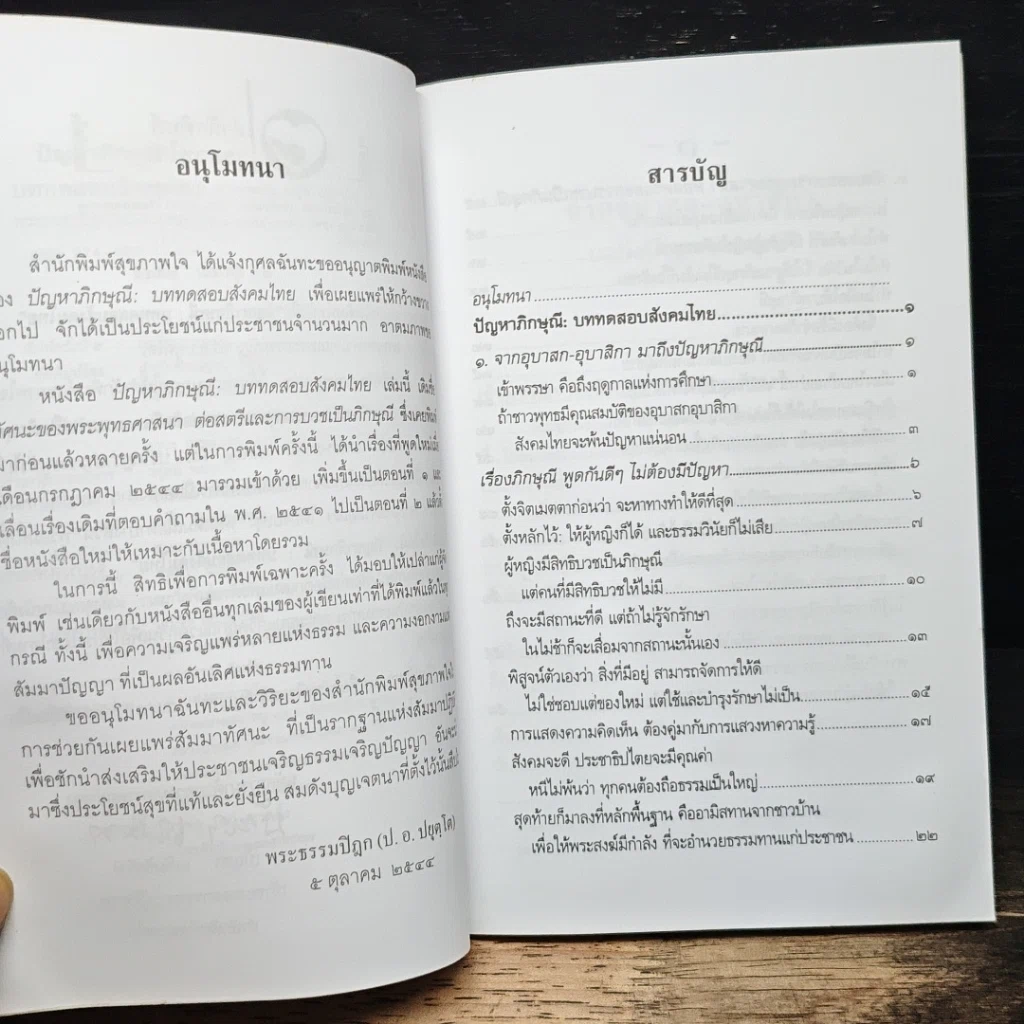 อนุโมทนา
สำนักพิมพ์สุขภาพใจ ได้แจ้งกุศลฉันทะขออนุญาตพิมพ์หนังสือ
ปัญหาภิกษุณี: บททดสอบสังคมไทย เพื่อเผยแพร่ให้กว้างขวาง
จักได้เป็นประโยชน์แก่ประชาชนจำนวนมาก
หนังสือ ปัญหาภิกษุณี: บททดสอบสังคมไทย เล่มนี้
ของพระพุทธศาสนา ต่อสตรีและการบวชเป็นภิกษุณี
ก่อนแล้วหลายครั้ง แต่ในการพิมพ์ครั้งนี้ ได้นำเรื่องที่พูดใหม่
เดือนกรกฎาคม ๒๕๔๔ มารวมเข้าด้วย เพิ่มขึ้นเป็นตอนที่ ๑
เลื่อนเรื่องเดิมที่ตอบคำถามใน พ.ศ. ๒๕๔๑ ไปเป็นตอนที่ ๒
ชื่อหนังสือใหม่ให้เหมาะกับเนื้อหาโดยรวม
ในการนี้ สิทธิเพื่อการพิมพ์เฉพาะครั้ง ได้มอบให้เปล่าแก่
พิมพ์ เช่นเดียวกับหนังสืออื่นทุกเล่มของผู้เขียนเท่าที่ได้พิมพ์แล้ว
กรณี ทั้งนี้ เพื่อความเจริญแพร่หลายแห่งธรรม และความงอกงาม
สัมมาปัญญา ที่เป็นผลอันเลิศแห่งธรรมทาน
ขออนุโมทนาฉันทะและวิริยะของสำนักพิมพ์สุขภาพใจ
การช่วยกันเผยแพร่สัมมาทัศนะ ที่เป็นรากฐานแห่ง
เพื่อชักนำส่งเสริมให้ประชาชนเจริญธรรมเจริญปัญญา
มาซึ่งประโยชน์สุขที่แท้และยั่งยืน สมดังบุญเจตนาที่ตั้งไว้นั้น
พระธรรมปิฎก (ป. อ. ปยุตฺโต)
๕ ตุลาคม ๒๕๔๔
สารบัญ
อนุโมทนา
ปัญหาภิกษุณี: บททดสอบสังคมไทย ๑
๑. จากอุบาสก-อุบาสิกา มาถึงปัญหาภิกษุณี ๑
เข้าพรรษา คือถึงฤดูกาลแห่งการศึกษา ๑
ถ้าชาวพุทธมีคุณสมบัติของอุบาสกอุบาสิกา
สังคมไทยจะพ้นปัญหาแน่นอน ๓
เรื่องภิกษุณี พูดกันดีๆ ไม่ต้องมีปัญหา ๖
ตั้งจิตเมตตาก่อนว่า จะหาทางทำให้ดีที่สุด ๖
ตั้งหลักไว้: ให้ผู้หญิงก็ได้ และธรรมวินัยก็ไม่เสีย ๗
ผู้หญิงมีสิทธิบวชเป็นภิกษุณี
แต่คนที่มีสิทธิบวชให้ไม่มี ๑๐
ถึงจะมีสถานะที่ดี แต่ถ้าไม่รู้จักรักษา
ในไม่ช้าก็จะเสื่อมจากสถานะนั้นเอง ๑๓
พิสูจน์ตัวเองว่า สิ่งที่มีอยู่ สามารถจัดการให้ดี
ไม่ใช่ชอบแต่ของใหม่ แต่ใช้และบำรุงรักษาไม่เป็น ๑๕
การแสดงความคิดเห็น ต้องคู่มากับการแสวงหาความรู้ ๑๗
สังคมจะดี ประชาธิปไตยจะมีคุณค่า
หนีไม่พ้นว่า ทุกคนต้องถือธรรมเป็นใหญ่ ๑๙
สุดท้ายก็มาลงที่หลักพื้นฐาน คืออามิสทานจากชาวบ้าน
เพื่อให้พระสงฆ์มีกำลัง ที่จะอำนวยธรรมทานแก่ประชาชน ๒๒